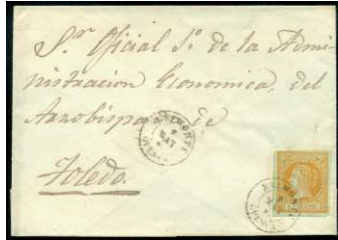 Sr Oficial 1º de la Admi-
nistracion Economica, del
Arzobispado de
Toledo.